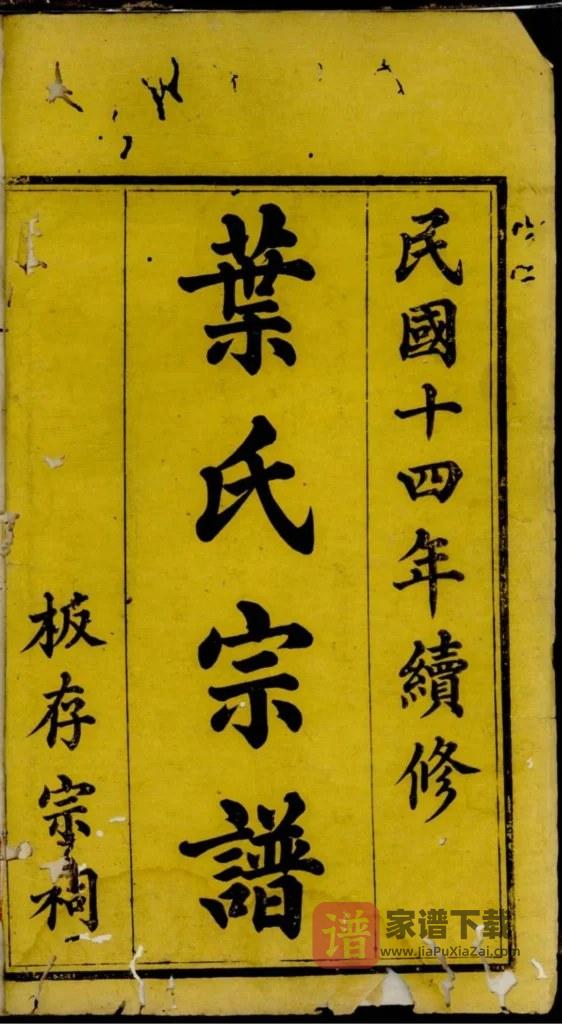 民國十四年續修
葉氏宗譜
板存宗祠
谱 家谱下载
www.jiaPuXiaZai.com